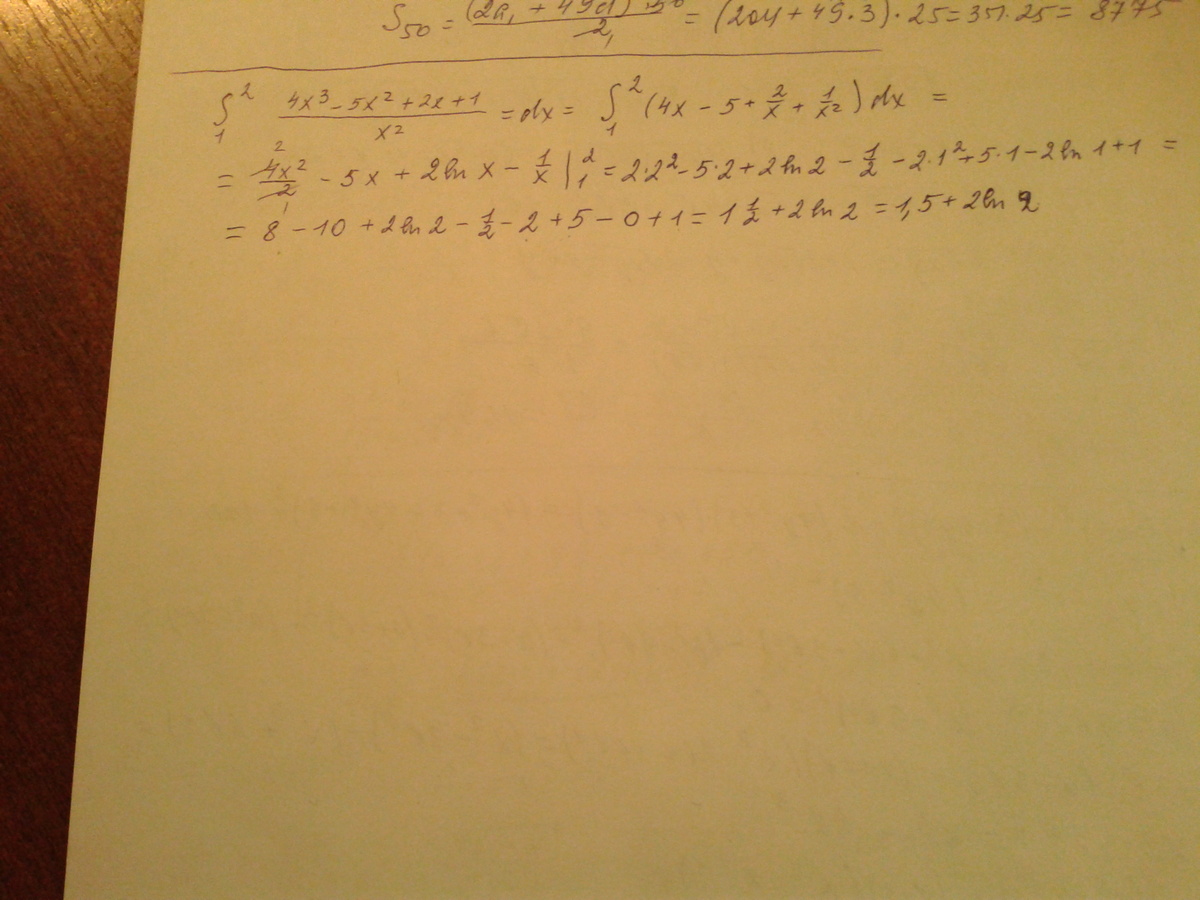 S₅₀ = (2a₁ + 49d) · 50 / 2 = (204 + 49·3) · 25 = 351·25 = 8775
∫₁² (4x³ - 5x² + 2x + 1)/x² = dx = ∫₁² (4x - 5 + 2/x + 1/x²) dx =
= 4x²/2 - 5x + 2ln x - 1/x |₁² = 2·2² - 5·2 + 2ln 2 - 1/2 - 2·1² + 5·1 - 2ln 1 + 1 =
= 8 - 10 + 2ln 2 - 1/2 - 2 + 5 - 0 + 1 = 1 1/2 + 2ln 2 = 1,5 + 2ln 2